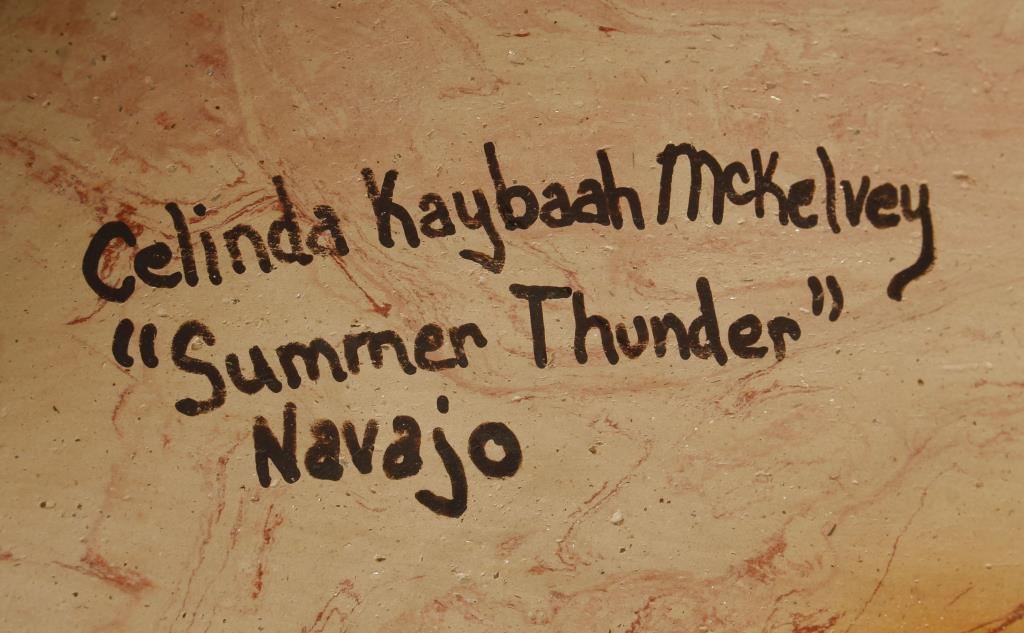 Celinda Kaybaah McKelvey
"Summer Thunder"
Navajo